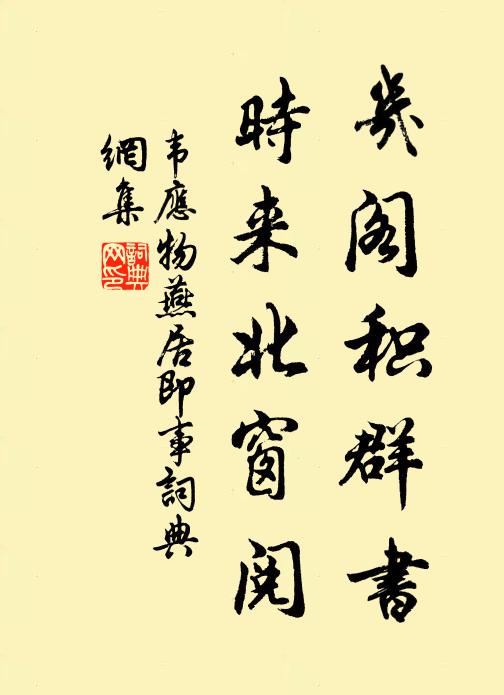 幾阁积群書
時来北窗閱
韦應物燕居即事詞典
網集
詞典网印